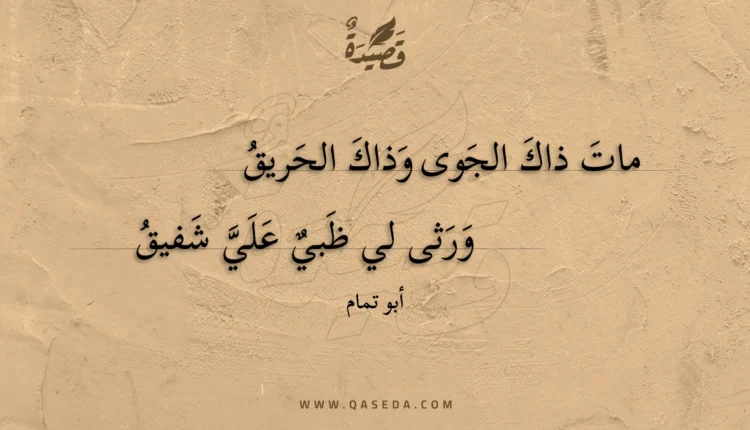 قَصِيْدَةٌ
ماتَ ذاكَ الجَوى وَذاكَ الحَريقُ
وَرَثى لي ظَبيٌ عَلَيَّ شَفيقُ
أبو تمام
WWW.QASEDA.COM